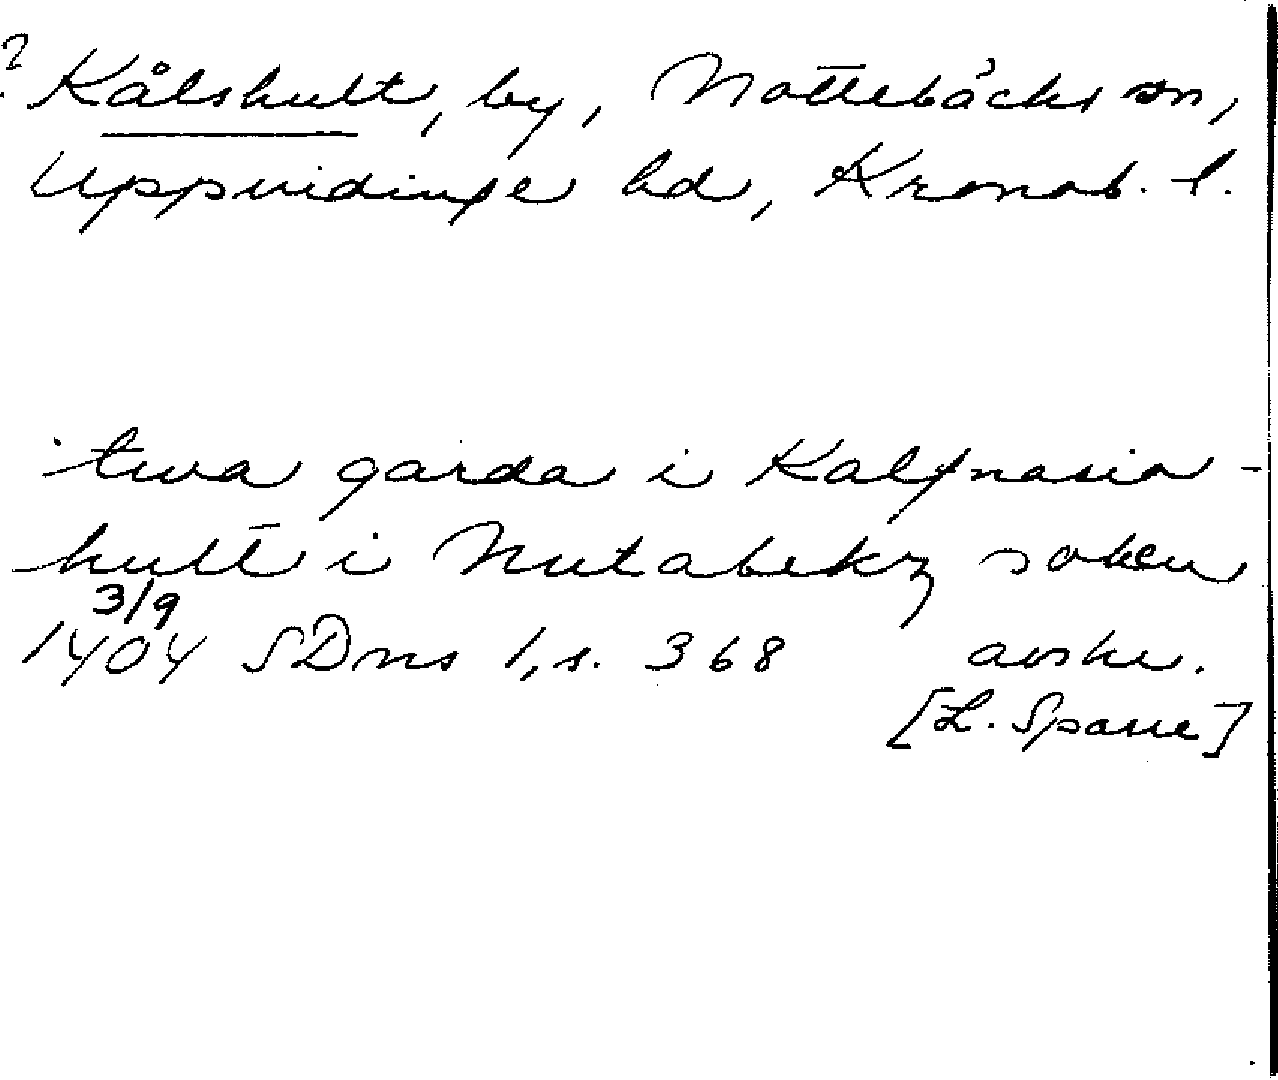 ? Kålshult, by, Nottebäcks sn,
Uppvidinge hd, Kronob. l.
twa garda i Kalfnasia-
hult i Nutabekz soken
3/9
1404 SDns 1, s. 368 avskr.
[L. Sparre]